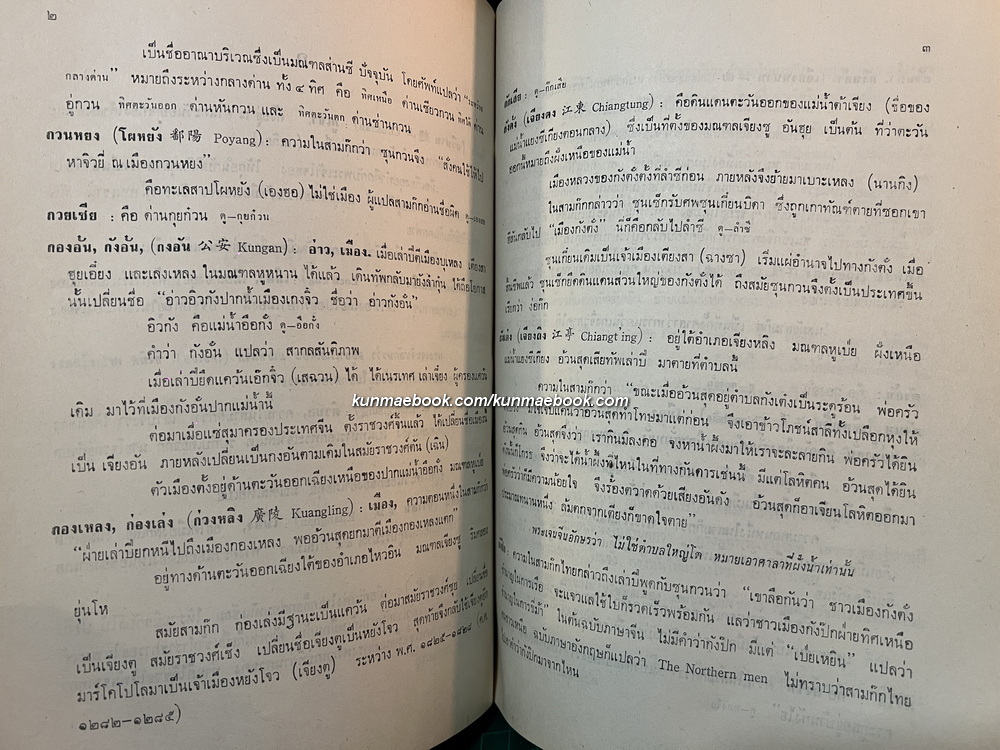 ๒
เป็นชื่ออาณาบริเวณซึ่งเป็นมณฑลส่านซี ปัจจุบัน โดยศัพท์แปลว่า "ระหว่าง
กลางด่าน" หมายถึงระหว่างกลางด่าน ทั้ง ๔ ทิศ คือ ทิศเหนือ ด่านเซียวกวน ทิศใต้ ด่าน
อู่กวน ทิศตะวันออก ด่านหันกวน และ ทิศตะวันตก ด่านซ่านกวน
กวนหยง (โผหยัง 鄱陽 Poyang) : ความในสามก๊กว่า ซุนกวนจึง "สั่งคนใช้ให้ไป
หาจิวยี่ ณ เมืองกวนหยง"
คือทะเลสาปโผหยัง (เองฮอ) ไม่ใช่เมือง ผู้แปลสามก๊กอ่านชื่อผิด
กวยเซีย : คือ ด่านกุยก๋วน ดู–กุยก๋วน
กองอั้น, กังอั้น, (กงอัน 公安 Kungan) : อ่าว, เมือง. เมื่อเล่าปี่ตีเมืองบุเหลง เตียงสา
ฮุยเอี๋ยง และเลงเหลง ในมณฑลหูหนาน ได้แล้ว เดินทัพกลับมายังลำกุ๋น ได้ถือโอกาส
นั้นเปลี่ยนชื่อ "อ่าวอิวกังปากน้ำเมืองเกงจิ๋ว ชื่อว่า อ่าวกังอั้น"
อิวกัง คือแม่น้ำอือกั้ง ดู–อือกั้ง
คำว่า กังอั้น แปลว่า สากลสันติภาพ
เมื่อเล่าปี่ยึดแคว้นเอ๊กจิ๋ว (เสฉวน) ได้ ได้เนรเทศ เล่าเจี้ยง ผู้ครองแคว้น
เดิม มาไว้ที่เมืองกังอั้นปากแม่น้ำนี้
ต่อมาเมื่อแซ่สุมาครองประเทศจีน ตั้งราชวงศ์จิ้นแล้ว ได้เปลี่ยนชื่อเมืองนี้
เป็น เจียงอัน ภายหลังเปลี่ยนเป็นกงอันตามเดิมในสมัยราชวงศ์ตัน (เฉิน)
ตัวเมืองตั้งอยู่ด้านตะวันออกเฉียงเหนือของปากแม่น้ำอือกั้ง มณฑลหูเป่ย
กองเหลง, ก่องเล่ง (ก่วงหลิง 廣陵 Kuangling) : เมือง, ความตอนหนึ่งในสามก๊กว่า
"ฝ่ายเล่าปี่ยกหนีไปถึงเมืองกองเหลง พออ้วนสุดยกมาตีเมืองกองเหลงแตก"
อยู่ทางด้านตะวันออกเฉียงใต้ของอำเภอไหวอัน มณฑลเจียงซู ริมคลอง
ยุ่นโห
สมัยสามก๊ก ก่องเล่งมีฐานะเป็นแคว้น ต่อมาสมัยราชวงศ์ซุย เปลี่ยนชื่อ
เป็นเจียงตู สมัยราชวงศ์เช็ง เปลี่ยนชื่อเจียงตูเป็นหยังโจว สุดท้ายจึงกลับใช้เจียงตูอีก
มาร์โคโปโลมาเป็นเจ้าเมืองหยังโจว (เจียงตู) ระหว่าง พ.ศ. ๑๘๒๕–๑๘๒๘ (ค.ศ.
๑๒๘๒–๑๒๘๕)
๓
ดู–กิกเสีย
(เจียงตง 江東 Chiangtung) : คือดินแดนตะวันออกของแม่น้ำต้าเจียง (ชื่อของ
แม่น้ำแยงซีเกียงตอนกลาง) ซึ่งเป็นที่ตั้งของมณฑลเจียงซู อันฮุย เป็นต้น ที่ว่าตะวัน
ออกนี้หมายถึงฝั่งเหนือของแม่น้ำ
เมืองหลวงของกังตั๋งตั้งที่ลำซีก่อน ภายหลังจึงย้ายมาเบาะเหลง (นานกิง)
ในสามก๊กกล่าวว่า ซุนเซ็กรับศพซุนเกี๋ยนบิดา ซึ่งถูกเกาทัณฑ์ตายที่ซอกเขา
กลับไป "เมืองกังตั๋ง" นี่ก็คือกลับไปลำซี ดู–ลำซี
ซุนเกี๋ยนเดิมเป็นเจ้าเมืองเตียงสา (ฉางซา) เริ่มแผ่อำนาจไปทางกังตั๋ง เมื่อ
สิ้นชีพแล้ว ซุนเซ็กยึดดินแดนส่วนใหญ่ของกังตั๋งได้ ถึงสมัยซุนกวนจึงตั้งเป็นประเทศขึ้น
เรียกว่า ง่อก๊ก
(เจียงถิง 江亭 Chiangt ing) : อยู่ใต้อำเภอเจียงหลิง มณฑลหูเป่ย ฝั่งเหนือ
แม่น้ำแยงซีเกียง อ้วนสุดเสียทัพเล่าปี่ มาตายที่ตำบลนี้
ความในสามก๊กว่า "ขณะเมื่ออ้วนสุดอยู่ตำบลกังเต๋งเป็นระดูร้อน พ่อครัว
มีใจเจ็บแค้นว่าอ้วนสุดทำโทษมาแต่ก่อน จึงเอาข้าวโภชน์สาลีทั้งเปลือกหุงให้
อ้วนสุดกิน อ้วนสุดจึงว่า เรากินมิลงคอ จงหาน้ำผึ้งมาให้เราจะละลายกิน พ่อครัวได้ยิน
จึงว่าจะได้น้ำผึ้งที่ไหนในที่ทางกันดารเช่นนี้ มีแต่โลหิตคน อ้วนสุดได้ยิน
พ่อครัวว่าก็มีความน้อยใจ จึงร้องตวาดด้วยเสียงอันดัง อ้วนสุดก็อาเจียนโลหิตออกมา
ประมาณทนานหนึ่ง ล้มตกจากเตียงก็ขาดใจตาย"
พระเจนจีนอักษรว่า ไม่ใช่ตำบลใหญ่โต หมายเอาศาลาที่ฝั่งน้ำเท่านั้น
ความในสามก๊กไทยกล่าวถึงเล่าปี่พูดกับซุนกวนว่า "เขาลือกันว่า ชาวเมืองกังตั๋ง
ชำนาญในการเรือ จะแจวแลใช้ใบก็รวดเร็วพร้อมกัน แลว่าชาวเมืองกังปักฝ่ายทิศเหนือ
ชำนาญในการขี่ม้า" ในต้นฉบับภาษาจีน ไม่มีคำว่ากังปัก มีแต่ "เป่ยเหยิน" แปลว่า
ชาวเหนือ ฉบับภาษาอังกฤษก็แปลว่า The Northern men ไม่ทราบว่าสามก๊กไทย
ได้คำว่ากังปักมาจากไหน
kunmaebook.com/kunmaebook.com